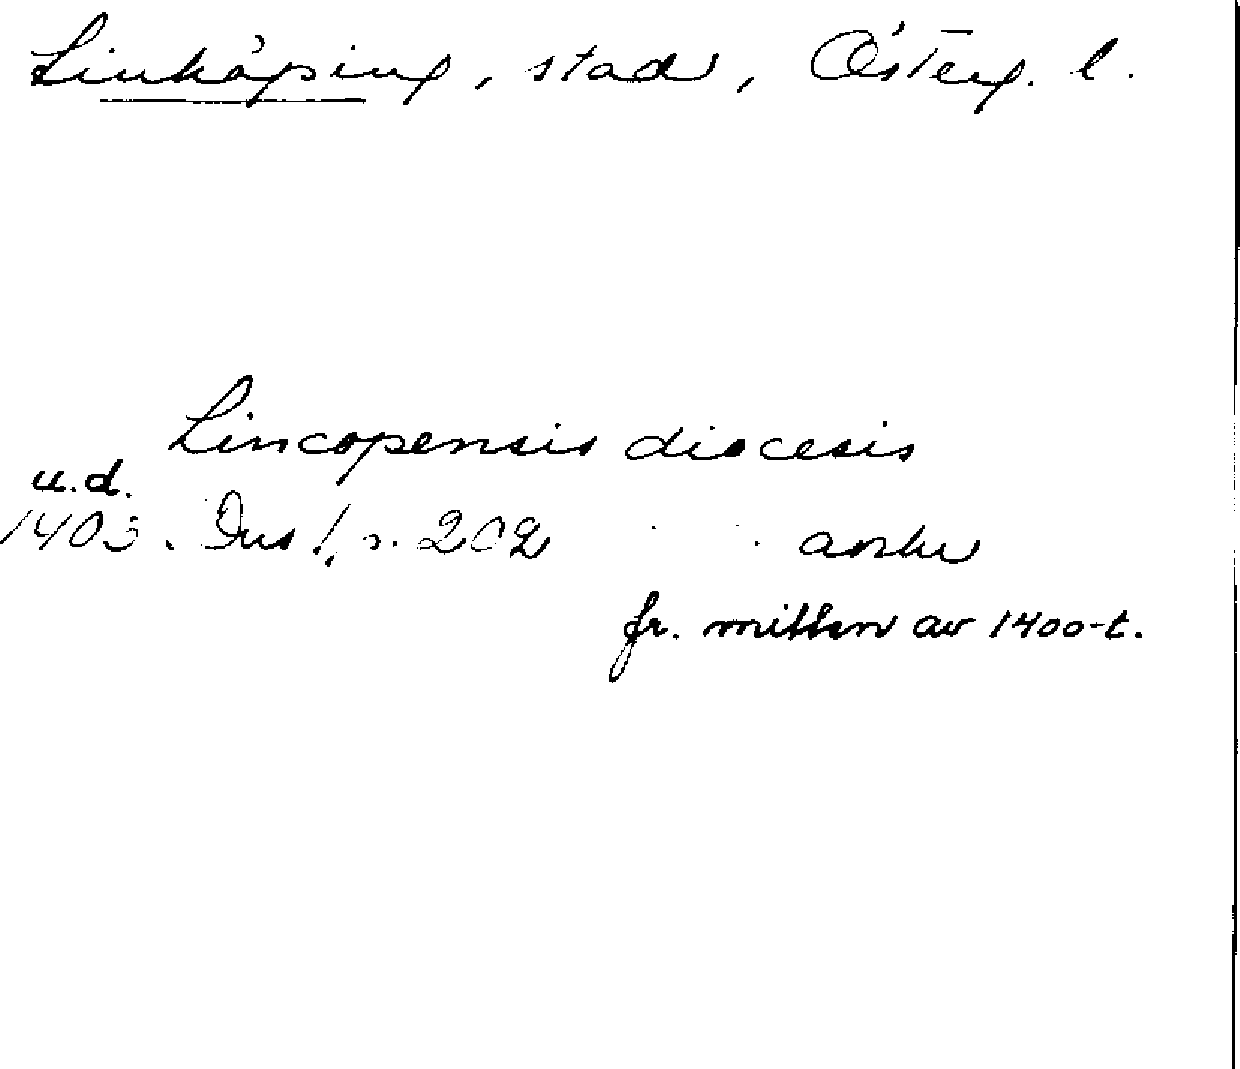 Linköping, stad, Österg. l.
Lincopensis diocesis
u.d.
1403. Dns 1, s. 202 avskr
fr. mitten av 1400-t.